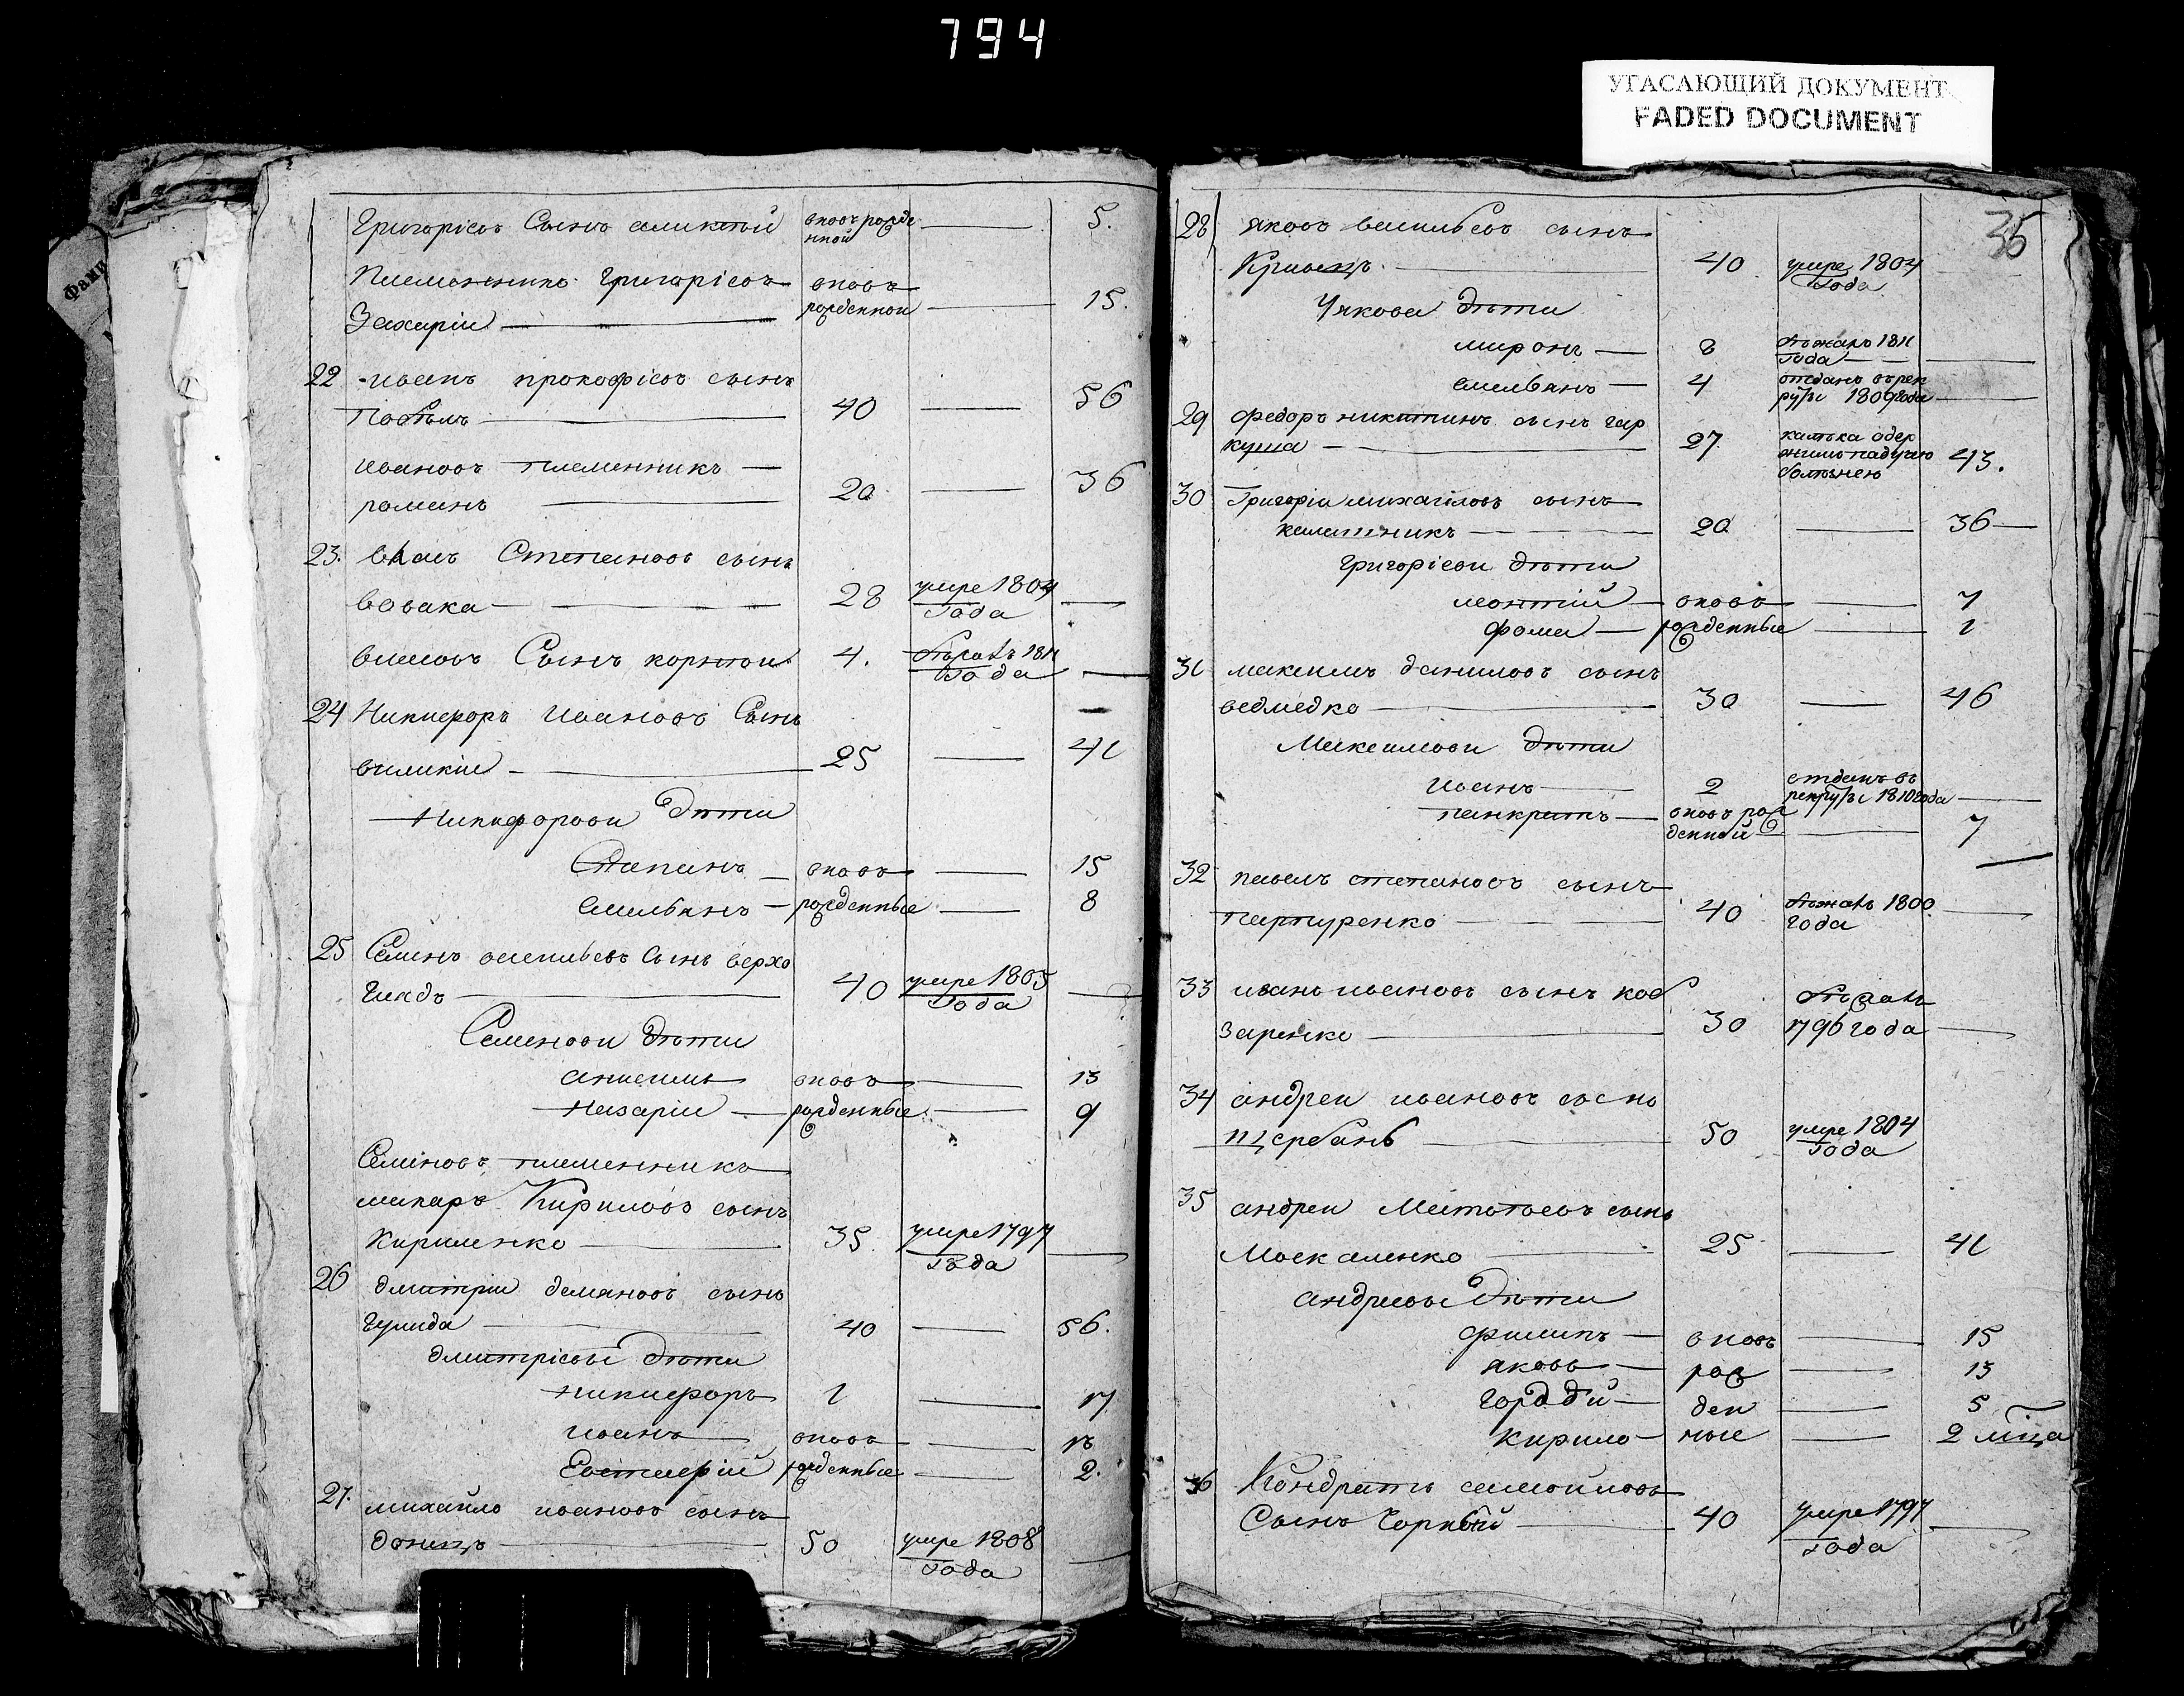 794
УГАСАЮЩИЙ ДОКУМЕНТ
FADED DOCUMENT
Григоріевъ Сынъ вновь рожде 5.
нной
Племенникъ Григоріевъ вновь
Захаріи рожденнои 15.
22 иванъ прокофіевъ сынъ
40 56
ивановъ племенникъ
романъ 20 36
23. власъ Степановъ сынъ
вовака 28 умре 1804
года
власовъ Сынъ корнеи 4. бѣжалъ 1811
года
24 Никифоръ ивановъ Сынъ
великіи 25 41
Никифорови дѣти
Степанъ вновь 15
Емельянъ рожденные 8
25 Семенъ василъевъ Сынъ верхо
глядъ 40 умре 1805
года
Семенови дѣти
анисимъ вновь 13
Назаріи рожденные 9
Семеновъ племенникъ
макаръ Кириловъ сынъ
кириленко 35 умре 1797
года
26 дмитріи демяновъ сынъ
гулида 40 56.
дмитріеви дѣти
никифоръ 1 17
иванъ вновь 13
Евстафій рожденные 2.
27. михайло ивановъ сынъ
донецъ 50 умре 1808
года
35
28 яковъ василъевъ сынъ
Кривецъ 40 умре 1804
года
Якова дѣти
миронъ 8 бѣжалъ 1811
года
емельянъ 4 отданъ въ рек
руты 1809 года
29 федоръ никитинъ сынъ гар
куша 27 калѣка одер
жимъ падучею 43.
болѣзнею
30 Григоріи михаіловъ сынъ
калашникъ 20 36
Григоріеви дѣти
леонтій вновь 7
фома рожденные 1
31 максимъ даниловъ сынъ
ведмедко 30 46
Максимови дѣти
иванъ 2 отданъ въ
рекруты 1810 года
панкратъ вновь рож
денной 7
32 павелъ степановъ сынъ
партуренко 40 бѣжалъ 1800
года
33 иванъ ивановъ сынъ коб
заренко 30 бѣжалъ
1796 года
34 андреи ивановъ сынъ
щербань 50 умре 1804
года
35 андреи Матвѣевъ сынъ
Москаленко 25 41
андреевы дѣти
филипъ вновь 15
яковъ рож 13
гордѣй ден 5
кирило ные 2 мца
36 Кондратъ самойловъ
Сынъ Чорный 40 умре 1797
года